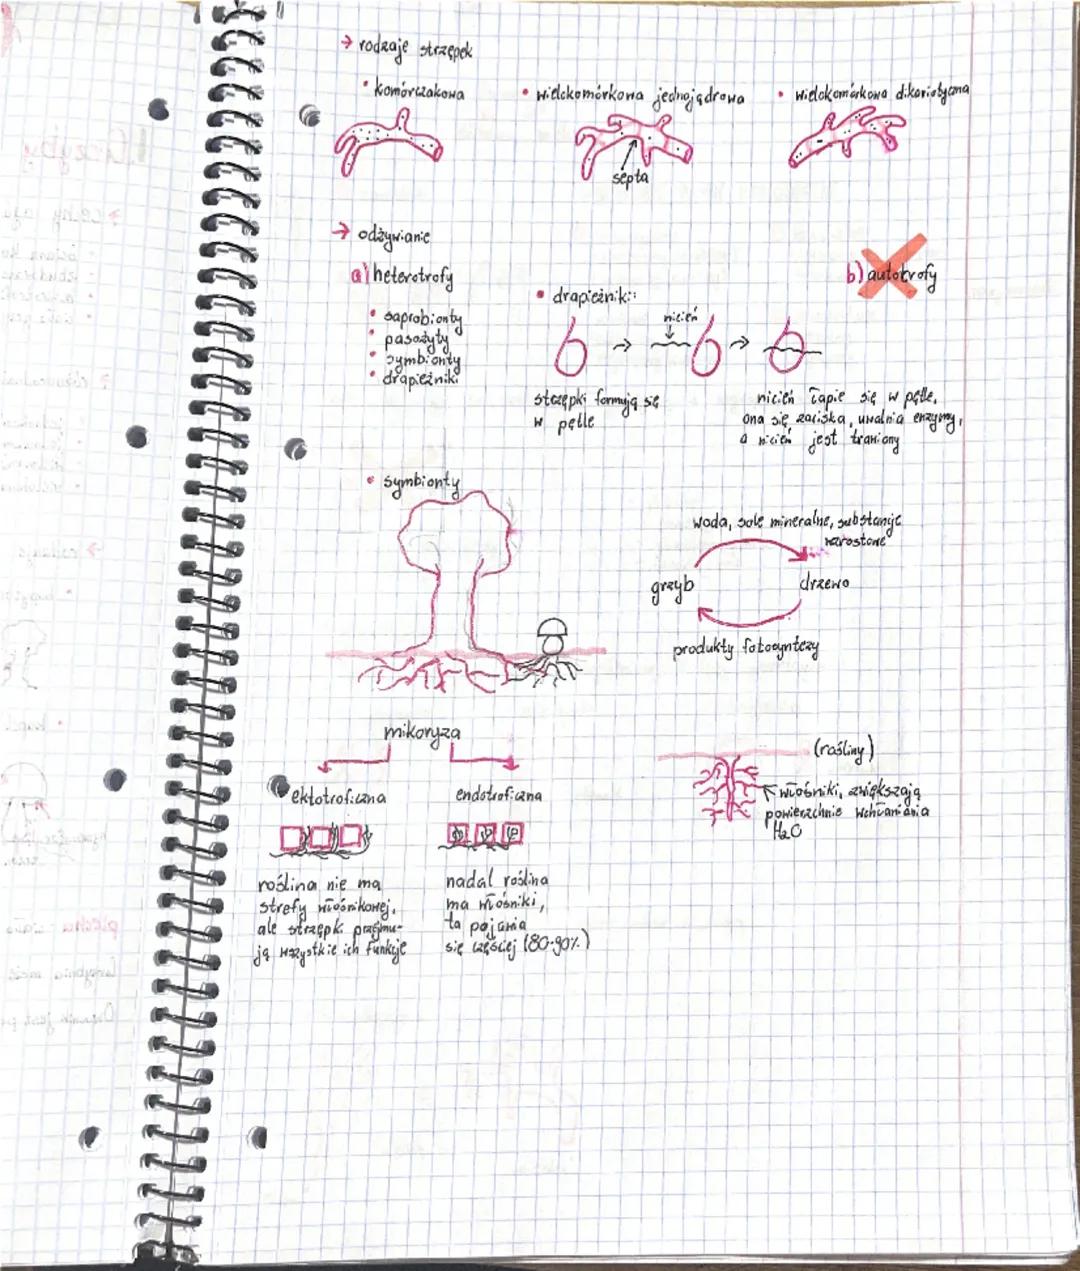 → rodzaje strzępek
• komórczakowa
• wielokomórkowa jednojądrowa
• wielokomórkowa dikariotyczna
septa
→ odżywianie
a) heterotrofy
b) autotrofy
• saprobionty
• pasożyty
• symbionty
• drapieżniki
• drapieżniki:
nicień
strzępki formują się
w pętle
nicień łapie się w pętle,
ona się zaciska, uwalnia enzymy,
a nicień jest trawiony
• symbionty
woda, sole mineralne, substancje
wzrostowe
grzyb
drzewo
produkty fotosyntezy
mikoryza
ektotroficzna
endotroficzna
(rośliny)
włośniki, zwiększają
powierzchnie wchłaniania
H2O
roślina nie ma
strefy włośnikowej,
ale strzępki przejmu-
ją wszystkie ich funkcje
nadal roślina
ma włośniki,
ta pojawia
się częściej (80-90%)
Grzyby